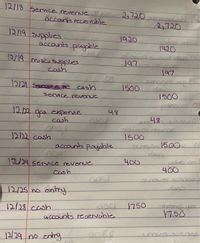 12/18 service revenue 2,720
accounts receivable 2,720
12/19 supplies 1920
accounts payable 1920
12/19 misc supplies 197
cash 197
12/21 cash 1500
service revenue 1500
12/22 gas expense 48
cash 48
12/22 cash 1500
accounts payable 1500
12/24 service revenue 400
cash 400
12/25 no entry
12/28 cash 1750
accounts receivable 1750
12/29 no entry